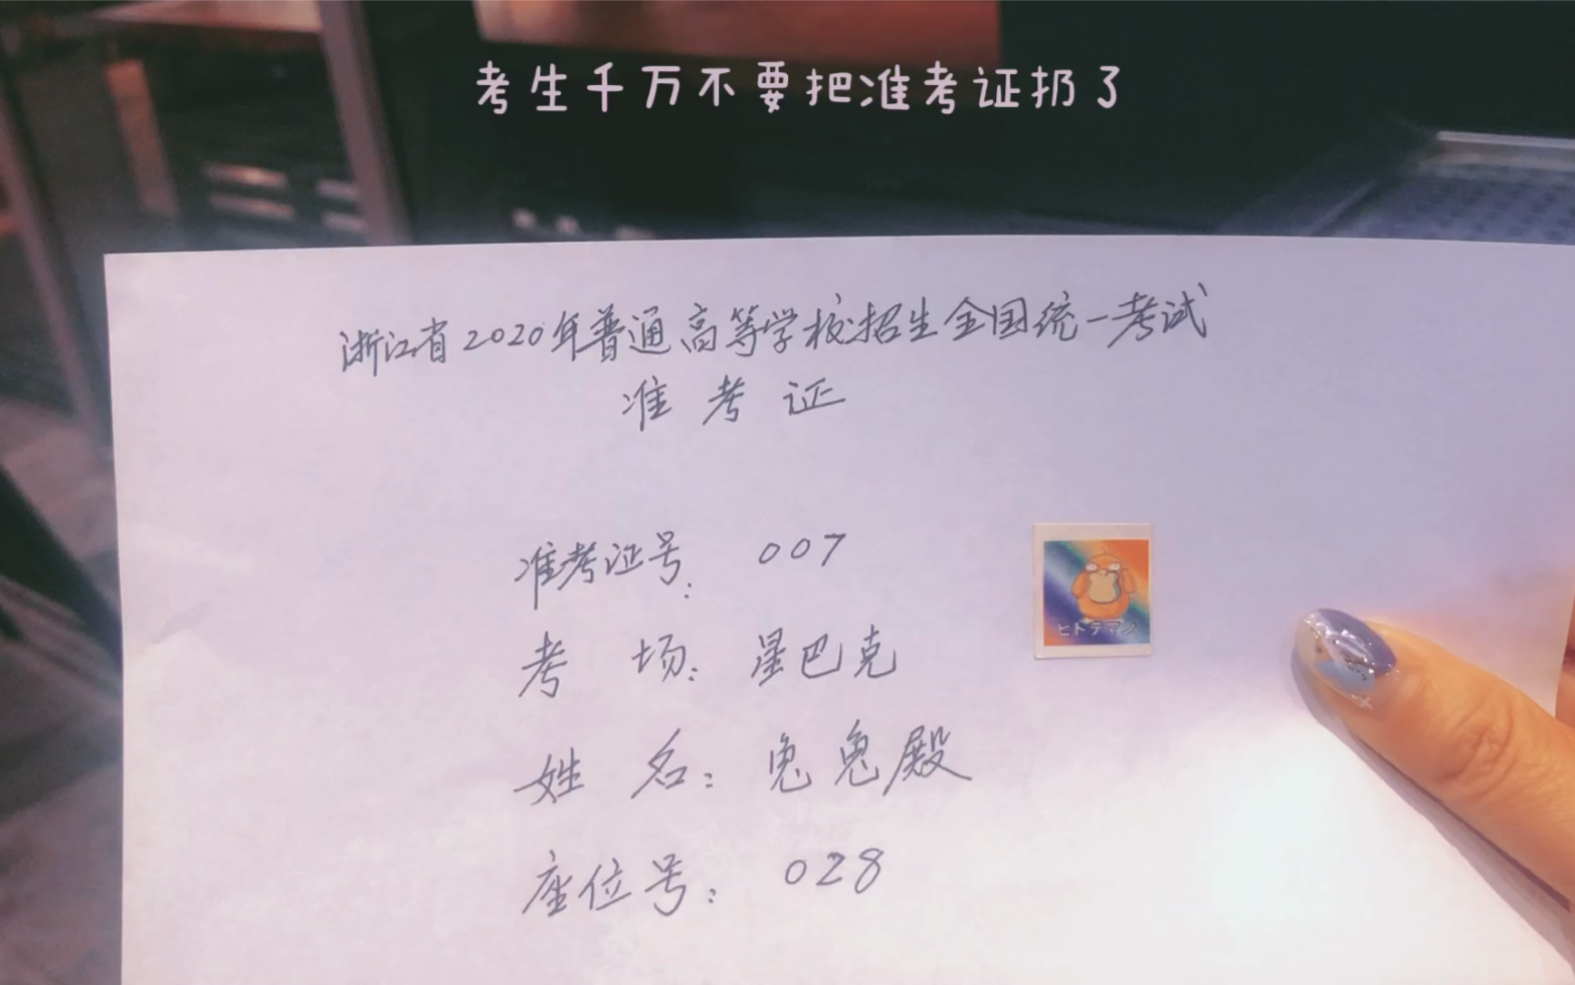 考生千万不要把准考证扔了
浙江省2020年普通高等学校招生全国统一考试
准考证
准考证号: 007
考场: 星巴克
ヒトデマン
姓名: 兔兔殿
座位号: 028